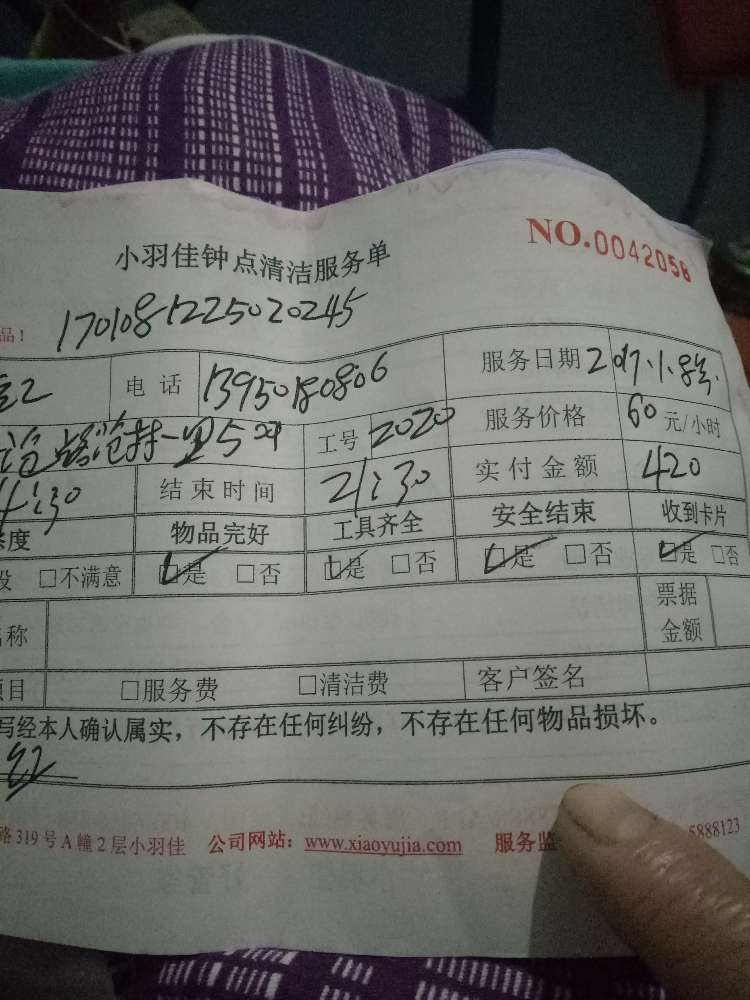 NO.0042058
小羽佳钟点清洁服务单
品! 170108122502024​5
电话 13950180806 服务日期 2017.1.8号
沧村一里 工号 2020 服务价格 60 元/小时
4:30 结束时间 21:30 实付金额 420
度 物品完好 工具齐全 安全结束 收到卡片
□不满意 □是 □否 □是 □否 □是 □否 □是 □否
名称 票据金额
项目 □服务费 □清洁费 客户签名
写经本人确认属实，不存在任何纠纷，不存在任何物品损坏。
红
路319号A幢2层小羽佳 公司网站：www.xiaoyujia.com 服务监 5888123